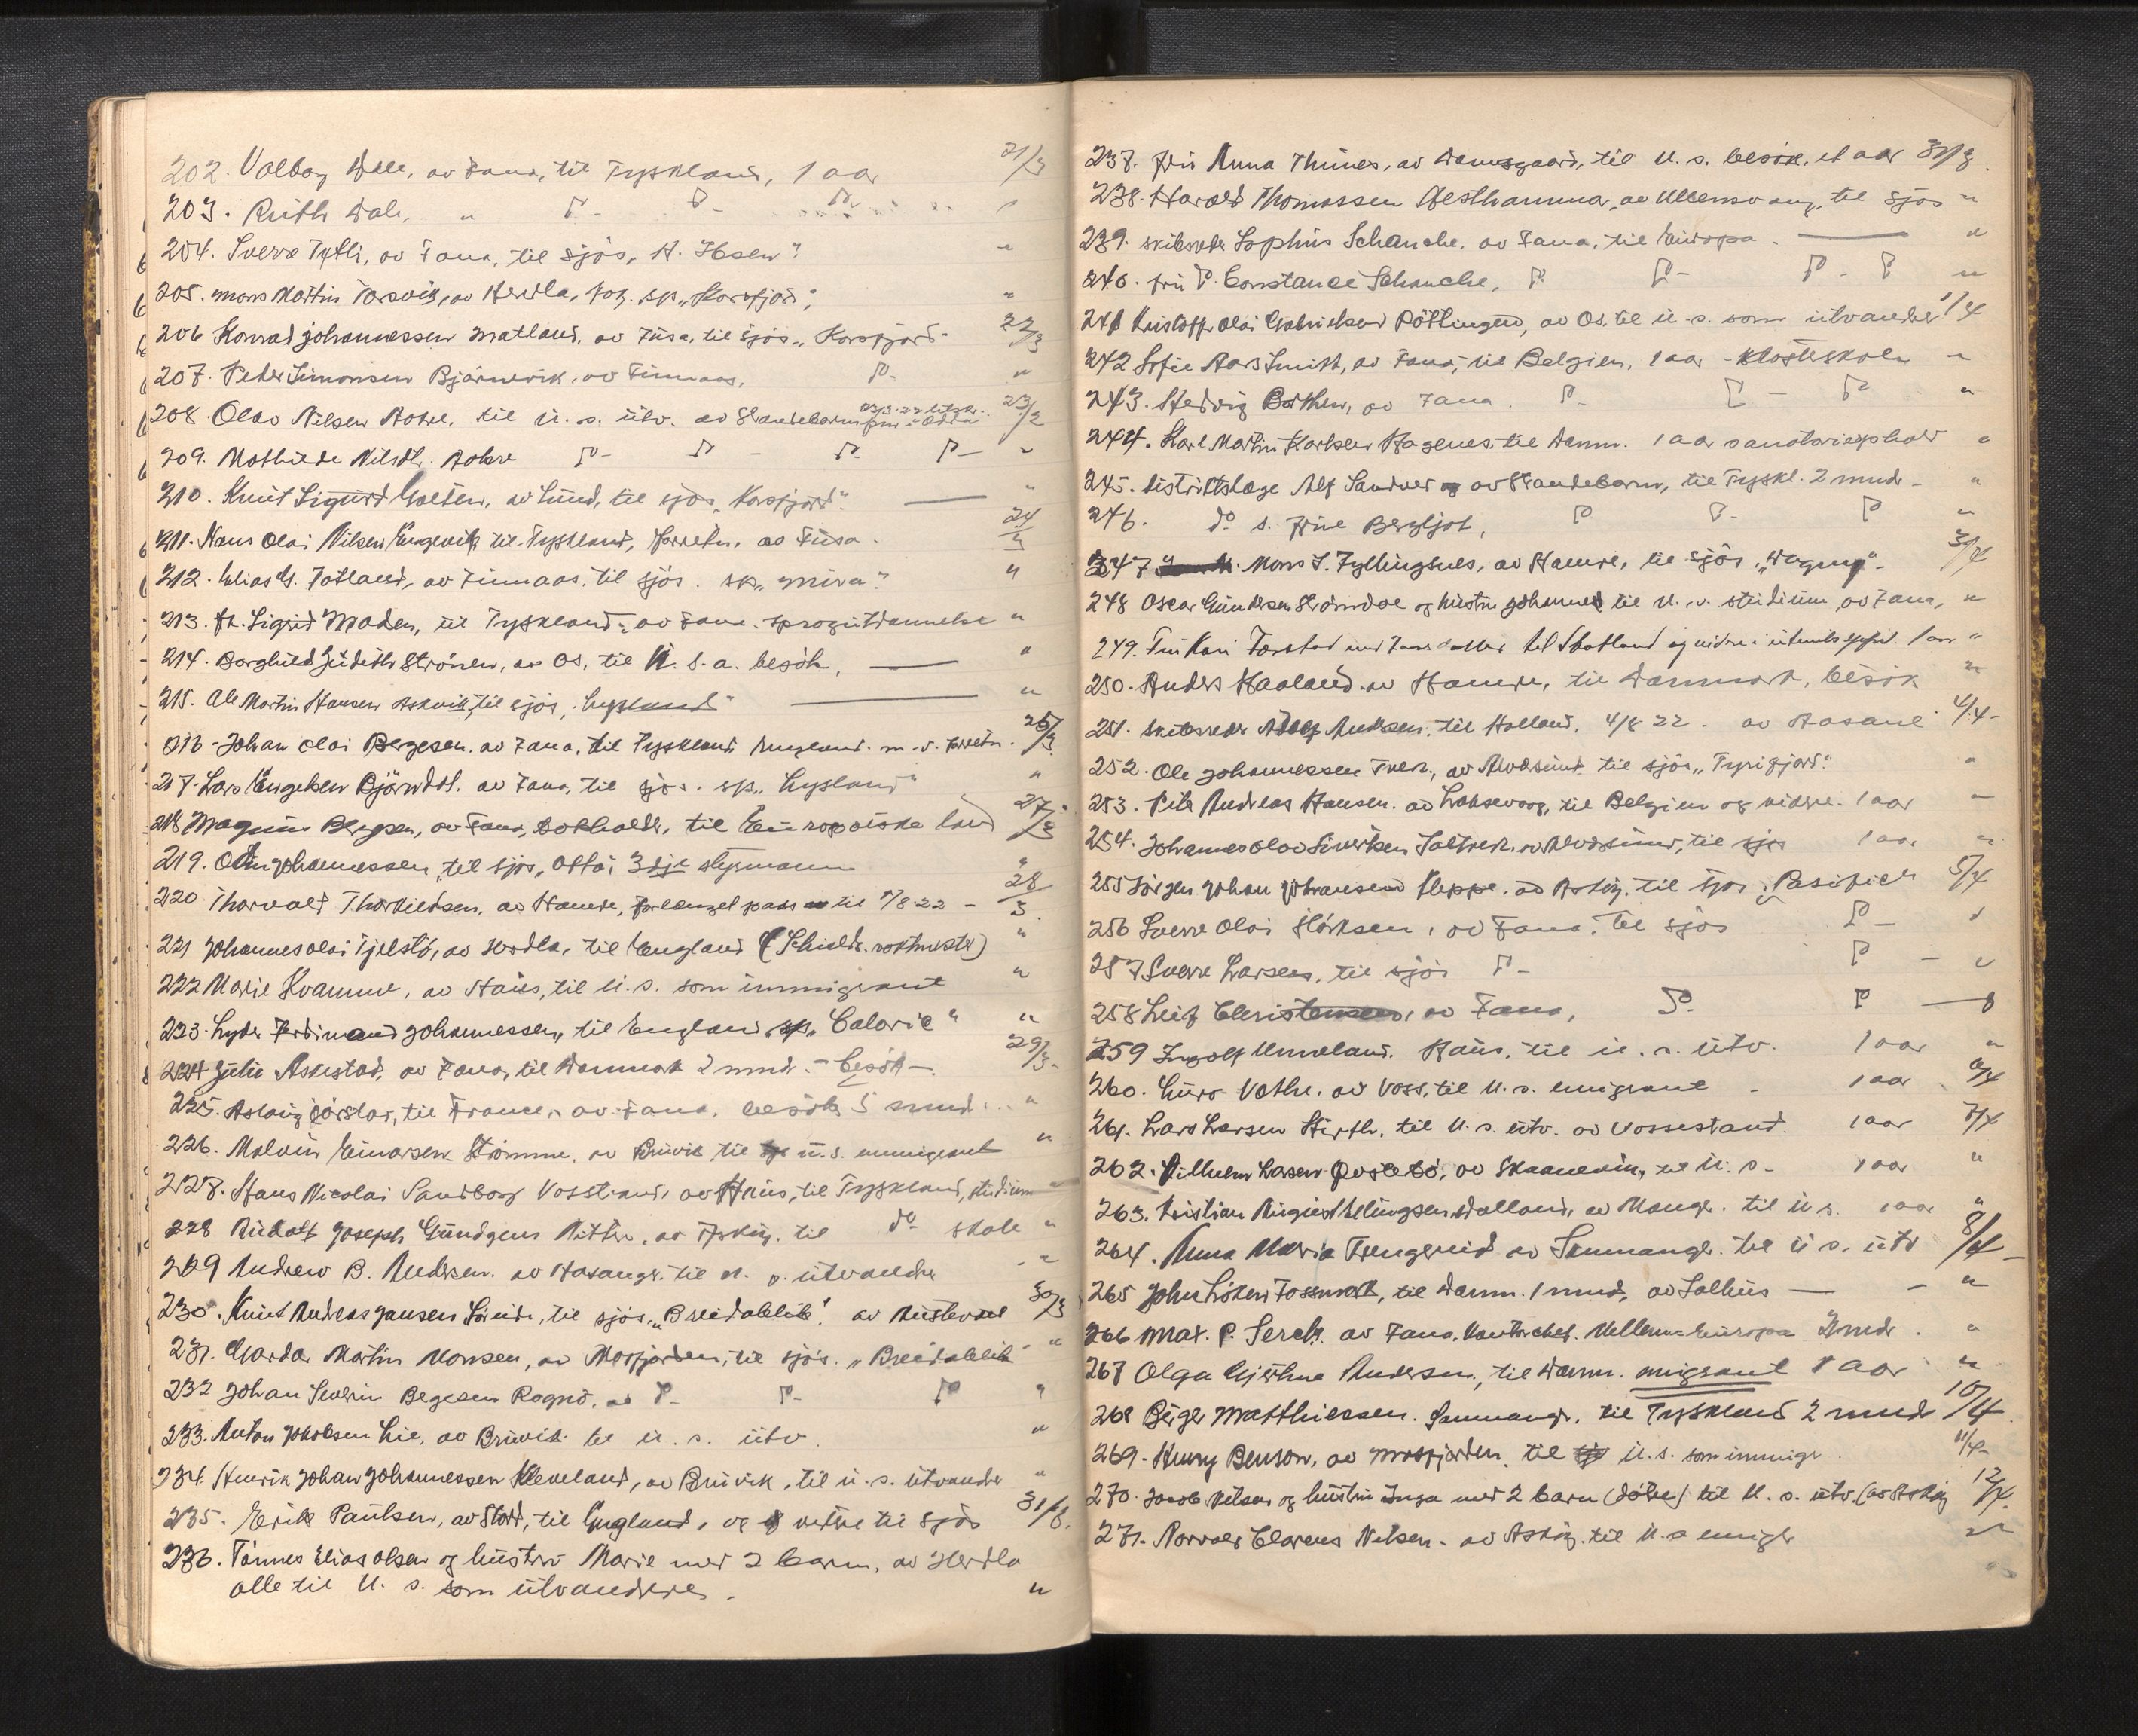 202. Valborg Dale, av Fana, til Tyskland, 1 aar 21/3
203. Ruth Dale, " do - do - do "
204. Sverre Tytli, av Fana, til sjös, H. Ibsen" "
205. Mons Martin Torsvik, av Herdla, sp. „Korsfjord" "
206 Konrad Johannessen Matland, av Fusa, til sjös „Korsfjord" 22/3
207. Peter Simonsen Bjärnevik, av Finnaas, do - "
208. Olav Nilsen Aakre, til U. s. utv. av Strandebarm 23/3
209. Mathilde Nilsdt. Aakre do - do - do do - "
210. Knut Sigurd Goeten, av Sund, til sjös „Korsfjord". "
211. Hans Olai Nilsen Engevik til Tyskland, forretn. av Fusa. 24/3
212. Elias G. Totland, av Finnaas, til sjös. sp. „Mira" "
213. Fr. Sigrid Maden, til Tyskland, av Fana. sprogutdannelse "
214. Borghild Judith Strönen, av Os, til U. S. a. besök, "
215. Ole Martin Hansen Askvik, til sjös, „Lysland" "
216 - Johan Olai Bergesen. av Fana, til Tyskland England. m. v. forretn. 25/3
217. Lars Engelsen Björndal. av Fana, til sjös. sp. „Lysland" "
218 Magnus Bergsen, av Fana, bokholder, til Europæiske land 27/3
219. Odin Johannessen, til sjös, Otta, 3dje styrmann "
220 Thorvald Thorkildsen, av Hamre, forlænget pass til 1/8 22 - 28/3
221 Johannes Olai Tjelstö, av Herdla, til England (Schieldr. roktmester) "
222 Marie Kvamme, av Haus, til U. S. som immigrant "
223. Lyder Ferdinand Johannessen, til England, sp. „Caloric" "
224 Julie Askestad, av Fana, til Danmark 2 mnd. - besök -. 29/3
225. Aslaug Görstar, til France, av Fana, besök 5 mnd. "
226. Malvin Einarsen Strömme, av Bruvik til U. S. emmigrant "
227. Hans Nicolai Sandborg Vosstrand, av Haus, til Tyskland, studium "
228 Rudolf Joseph Gündgens Ritter, av Asköy. til do skole "
229 Andrew B. Andersen. av Hosanger til U. s. utvandrer "
230. Knut Andreas Jansen Låreide, til sjös, „Breidablik". av Austevoll 30/3
231. Gardar Martin Monsen, av Mosfjorden, til sjös. „Breidablik" "
232 Johan Severin Begesen Rognö. av do - do - do "
233. Anton Jakobsen Lie, av Bruvik til U. s. utv. "
234 Henrik Johan Johannessen Kleveland, av Bruvik, til U. S. utvandrer "
235. Erik Paulsen, av Stord, til England, og videre til sjös 31/3.
236. Tönnes Elias Olsen og hustru Marie med 2 barn, av Herdla
alle til U. S. som utvandrere. "
237. Fru Anna Thunes, av Damsgaard, til U. s. besök, et aar 31/3.
238. Harald Thomassen Aesthammar, av Ullensvang, til sjös "
239. skibsreder Sophus Schanche, av Fana, til Europa. "
240. fru P. Constance Schanche, do do - do - do "
241 Kristoffer Olai Gabrielsen Röttingen, av Os, til U. s. som utvandrer 1/4
242 Sofie Aars Smith, av Fana, til Belgien, 1 aar - klosterskole "
243. Hedvig Bothen, av Fana. do - do - do "
244. Karl Martin Karlsen Hagenes, til Danm. 1 aar sanatorieophold "
245. distriktslæge Alf Sandver av Strandebarm, til Tyskl. 2 mnd - "
246. do s. frue Bergljot, do do - do "
247 Mons J. Fyllingsnes, av Hamre, til sjös, „Dagny" - 3/4
248 Oscar Gundersen Strömdoe og hustru Johanne til U. s. studium, av Fana, "
249. Frk Kari Tarstad til Skotland og videre 1 aar "
250. Anders Haaland. av Hamre, til Danmark, besök "
251. skibsreder Adolf Andersen, til Holland, 4/8 22. av Aasane 4/4 -
252. Ole Johannessen Tveit, av Alversund til sjös „Tyrifjord". "
253. Peter Andreas Hansen. av Laksevaag, til Belgien og videre. 1 aar "
254. Johannes Olav Sivertsen Toltveit, av Alversund, til sjös 1 aar "
255 Jörgen Johan Johansen Kleppe, av Asköy. til sjös „Pasifick 5/4
256 Sverre Olai Hörksen, av Fana, til sjös do - "
257 Sverre Larsen, til sjös do - do - "
258 Leif Christensen, av Fana, do do "
259 Ingolf Unneland. Haus, til U. s. utv. 1 aar "
260. Guro Vethe, av Voss, til U. s. emigrant - 1 aar 6/4
261. Lars Larsen Hirth, til U. s. utv. av Vossestrand. 1 aar 7/4
262. Vilhelm Larsen Qvalebö, av Skaanevik, til U. s - 1 aar "
263. Kristian August Ellingsen Dalland, av Manger. til U. s. 1 aar "
264. Anna Maria Trengereid av Samnanger. til U. s. utv 8/4 -
265 John Löken Fossmark, til Danm. 1 mnd, av Salhus - "
266 Max. P. Serck. av Fana, kontorchef. Mellem-Europa 2 mdr. "
267 Olga Gjertine Andersen, til Danm. emigrant 1 aar "
268 Börge Matthiessen. Samnang., til Tyskland 2 mndr 10/4.
269. Henry Benson, av Mosfjorden. til U. s. som immigr. 11/4 -
270. Jacob Nilsen og hustru Inga med 2 barn (döbte) til U. s. utv. (av Asköy 12/4.
271. Norvald Clarens Nilsen. av Asköy. til U. s emigr "